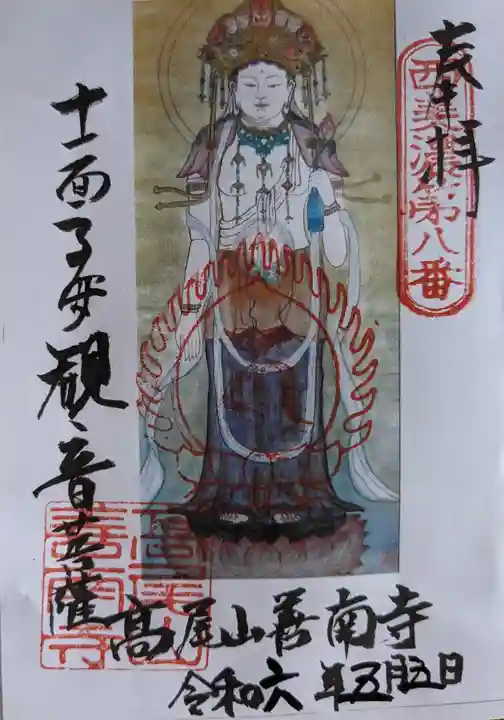 奉拝
西美濃第八番
十一面子安観音菩薩
高尾山善南寺
令和六年五月五日